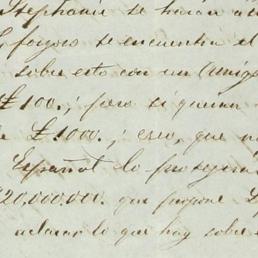 Stephanie se haran a
forzoso se encuentra el
sobre esto con un Amigo
£100., pero si quieren
£1000.; creo, que n
Español lo protegera
20.000.000. que propone
aclarar lo que hay sobre